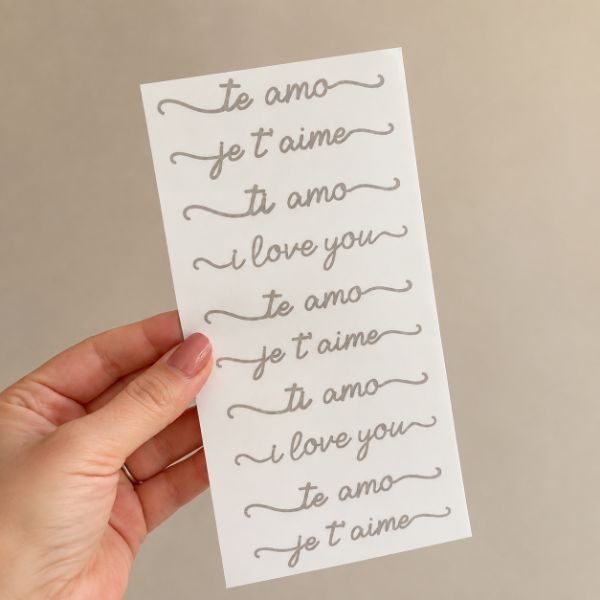 te amo
je t'aime
ti amo
i love you
te amo
je t'aime
ti amo
i love you
te amo
je t'aime